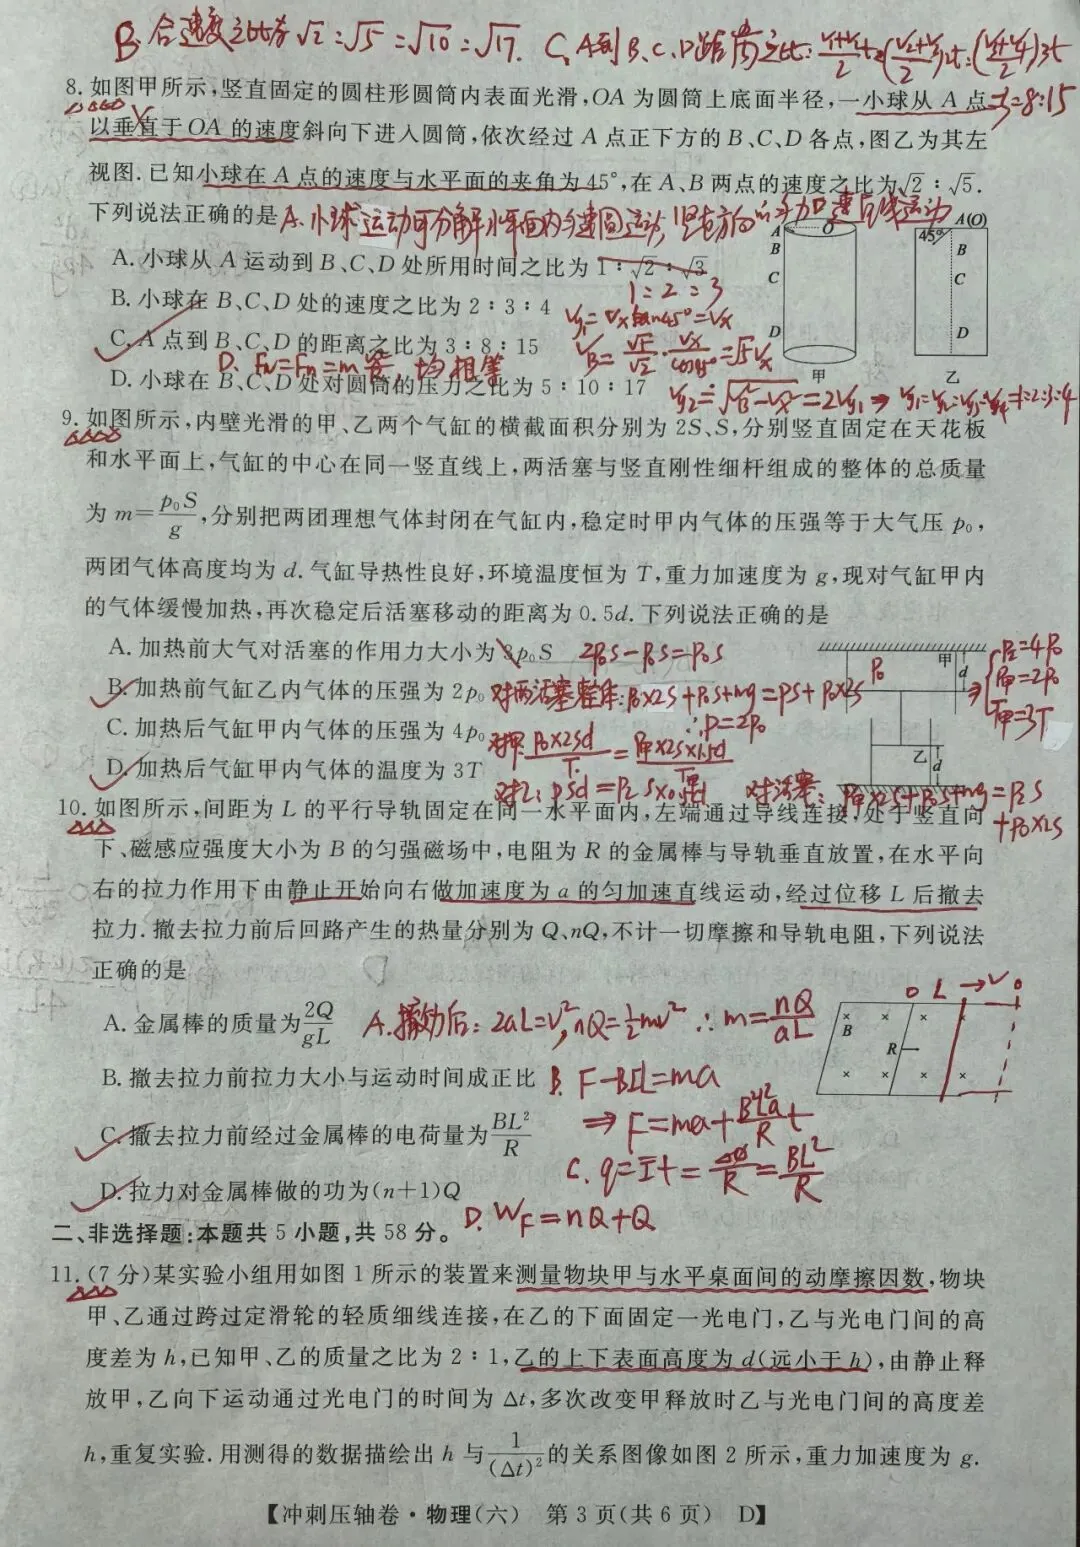 B. 合速度之比为√2:√5=√10=√17. C, A到B、C、D距离之比:
=3=8:15
8. 如图甲所示,竖直固定的圆柱形圆筒内表面光滑,OA 为圆筒上底面半径,一小球从 A 点
以垂直于 OA 的速度斜向下进入圆筒,依次经过 A 点正下方的 B、C、D 各点,图乙为其左
视图. 已知小球在 A 点的速度与水平面的夹角为 45°,在 A、B 两点的速度之比为√2:√5.
下列说法正确的是
A. 小球运动可分解水平面内匀速圆运动,竖直方向的匀加速直线运动
A. 小球从 A 运动到 B、C、D 处所用时间之比为 1:√2:√3
1=2=3
B. 小球在 B、C、D 处的速度之比为 2:3:4
C. A 点到 B、C、D 的距离之比为 3:8:15
D. 小球在 B、C、D 处对圆筒的压力之比为 5:10:17
A O
B
C
D
甲
A(O)
45°
B
C
D
乙
9. 如图所示,内壁光滑的甲、乙两个气缸的横截面积分别为 2S、S,分别竖直固定在天花板
和水平面上,气缸的中心在同一竖直线上,两活塞与竖直刚性细杆组成的整体的总质量
为 m=p₀S/g,分别把两团理想气体封闭在气缸内,稳定时甲内气体的压强等于大气压 p₀,
两团气体高度均为 d. 气缸导热性良好,环境温度恒为 T,重力加速度为 g,现对气缸甲内
的气体缓慢加热,再次稳定后活塞移动的距离为 0.5d. 下列说法正确的是
A. 加热前大气对活塞的作用力大小为 3p₀S 2P₀S-P₀S=P₀S
B. 加热前气缸乙内气体的压强为 2p₀ 对两活塞整体:P₀×2S+P₀S+mg=PS+P₀×2S
∴P=2P₀
C. 加热后气缸甲内气体的压强为 4p₀
D. 加热后气缸甲内气体的温度为 3T
甲 d
P₀
乙 d
P₂=4P₀
P甲=2P₀
T甲=3T
对活塞: P甲×2S+P₀S+mg=P₂S
+P₀×2S
10. 如图所示,间距为 L 的平行导轨固定在同一水平面内,左端通过导线连接,处于竖直向
下、磁感应强度大小为 B 的匀强磁场中,电阻为 R 的金属棒与导轨垂直放置,在水平向
右的拉力作用下由静止开始向右做加速度为 a 的匀加速直线运动,经过位移 L 后撤去
拉力. 撤去拉力前后回路产生的热量分别为 Q、nQ,不计一切摩擦和导轨电阻,下列说法
正确的是
A. 金属棒的质量为2Q/gL
2aL=V², nQ=½mv² ∴m=nQ/aL
B. 撤去拉力前拉力大小与运动时间成正比 B. F-BIL=ma
⇒F=ma+B²L²a/R t
C. 撤去拉力前经过金属棒的电荷量为BL²/R
C. q=It=ΔΦ/R=BL²/R
D. 拉力对金属棒做的功为(n+1)Q D. W_F=nQ+Q
0 L →V
B
R
二、非选择题:本题共 5 小题,共 58 分。
11. (7 分)某实验小组用如图 1 所示的装置来测量物块甲与水平桌面间的动摩擦因数,物块
甲、乙通过跨过定滑轮的轻质细线连接,在乙的下面固定一光电门,乙与光电门间的高
度差为 h,已知甲、乙的质量之比为 2:1,乙的上下表面高度为 d(远小于 h),由静止释
放甲,乙向下运动通过光电门的时间为 Δt,多次改变甲释放时乙与光电门间的高度差
h,重复实验. 用测得的数据描绘出 h 与1/(Δt)²的关系图像如图 2 所示,重力加速度为 g.
【冲刺压轴卷·物理(六) 第 3 页(共 6 页) D】